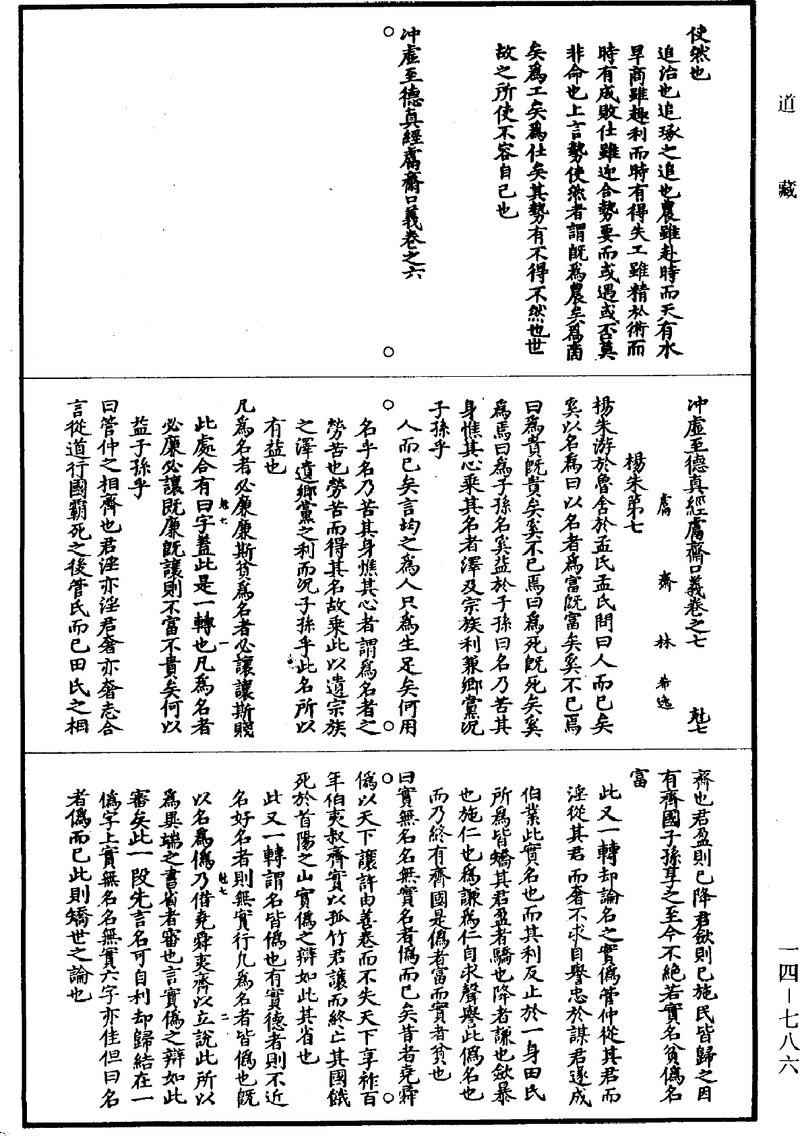 道藏
使然也
追治也追琢之追也農雖赴時而天有水
旱商雖趣利而時有得失工雖精於術而
時有成敗仕雖迎合勢要而或遇或否莫
非命也上言勢使然者謂既為農矣為商
矣為工矣為仕矣其勢有不得不然也世
故之所使不容自已也
冲虛至德真經鬳齋口義卷之六
冲虛至德真經鬳齋口義卷之七
鬳齋林希逸
楊朱第七
楊朱游於魯舍於孟氏孟氏問曰人而已矣
奚以名為曰以名者為富既富矣奚不已焉
曰為貴既貴矣奚不已焉曰為死既死矣奚
為焉曰為子孫名奚益於子孫曰名乃苦其
身燋其心乘其名者澤及宗族利兼鄉黨況
子孫乎
人而已矣言均之為人只為生足矣何用
名乎名乃苦其身燋其心者謂為名者之
勞苦也勞苦而得其名故乘此以遺宗族
之澤遺鄉黨之利而況子孫乎此名所以
有益也
凡為名者必廉廉斯貧為名者必讓讓斯賤
此處合有曰字蓋此是一轉也凡為名者
必廉必讓既廉既讓則不富不貴矣何以
益子孫乎
曰管仲之相齊也君淫亦淫君奢亦奢志合
言從道行國霸死之後管氏而已田氏之相
齊也君盈則已降君歛則已施民皆歸之因
有齊國子孫享之至今不絕若實名貧偽名
富
此又一轉却論名之實偽管仲從其君而
淫從其君而奢不求自譽忠於謀君遂成
伯業此實名也而其利反止於一身田氏
所為皆矯其君盈者驕也降者謙也歛暴
也施仁也為謙為仁自求聲譽此偽名也
而乃終有齊國是偽者富而實者貧也
曰實無名名無實名者偽而已矣昔者堯舜
偽以天下讓許由善卷而不失天下享祚百
年伯夷叔齊實以孤竹君讓而終亡其國餓
死於首陽之山實偽之辯如此其省也
此又一轉謂名皆偽也有實德者則不近
名好名者則無實行凡為名者皆偽也既
以名為偽乃借堯舜夷齊以立說此所以
為異端之書省者審也言實偽之辯如此
審矣此一段先言名可自利却歸結在一
偽字上實無名名無實六字亦佳但曰名
者偽而已此則矯世之論也
一四－七八六